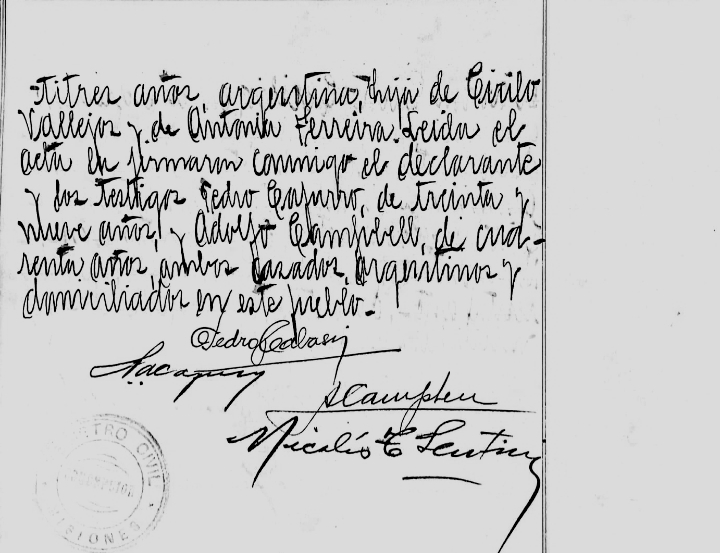 titres años, argentina, hija de Cirilo
Vallejos y de Antonia Ferreira. Leida el
acta en firmaron conmigo el declarante
y los testigos Pedro, de treinta y
nueve años, y Adolfo Campbell, de cua-
renta años, ambos casados, argentinos y
domiciliados en este pueblo.-
Pedro
ACampbell
TRO CIVIL
MISIONES